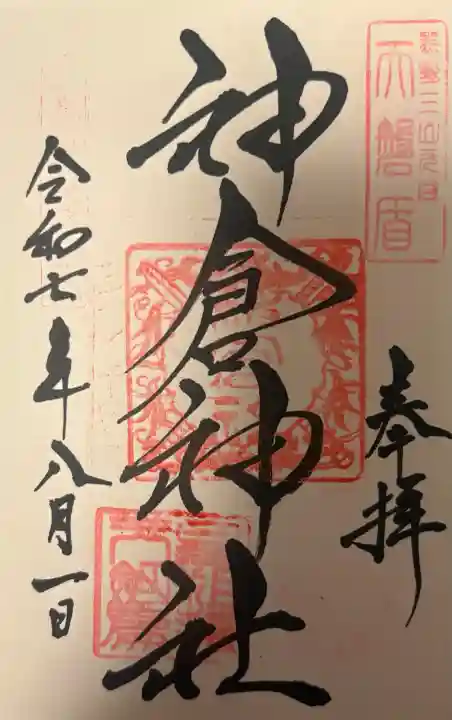 奉拝
天磐盾
神倉神社
令和七年八月一日